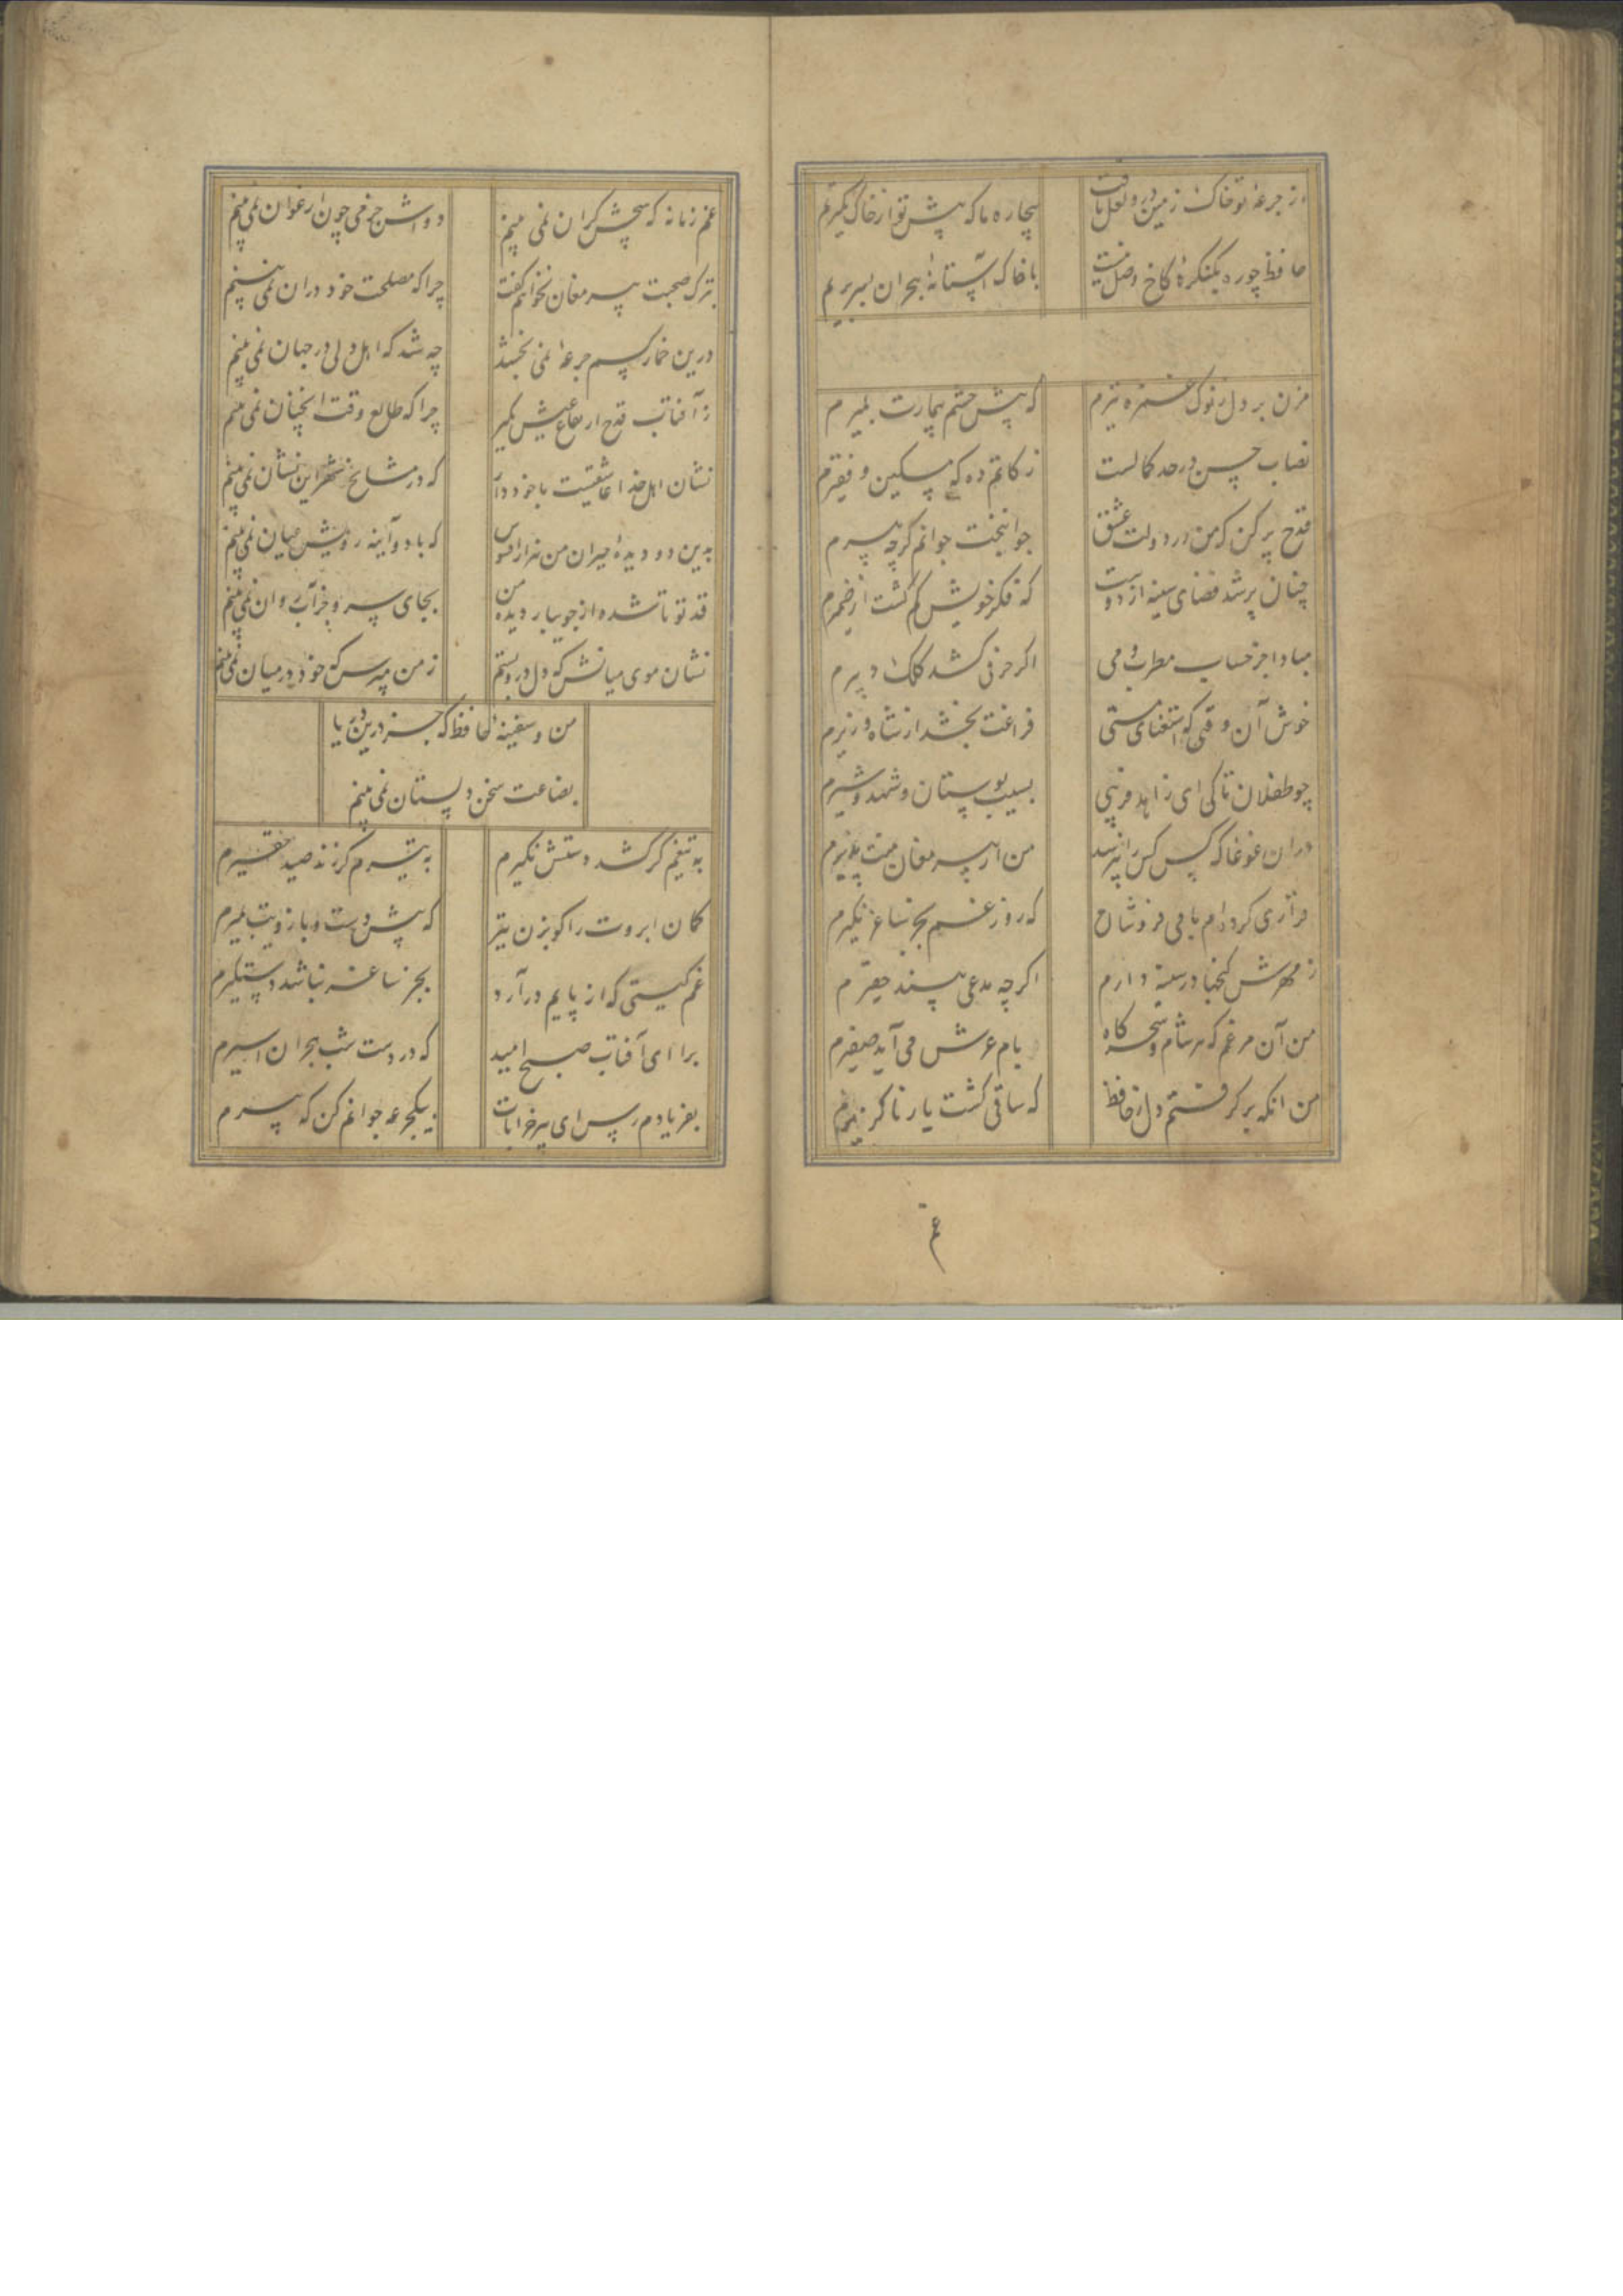 از جرعه تو خاک زمین در و لعل یافت
بیچاره ما که پیش تو از خاک کمتریم
حافظ چو ره بکنکره کاخ وصل نیست
با خاک آستانه هجران بسر بریم
مزن بر دل ز نوک غمزه تیرم
که پیش چشم بیمارت بمیرم
نصاب حسن در حد کمالست
زکاتم ده که مسکین و فقیرم
قدح پر کن که من در دولت عشق
جوانبخت جوانم کرچه پیرم
چنان پر شد فضای سینه از دوست
که فکر خویش کم کشت از ضمیرم
مبادا جز حساب مطرب و می
اکر حرفی کشد کلک دبیرم
خوش آن وقتی که استغنای مستی
فراغت بخشد از شاه و وزیرم
چو طفلان تا کی ای زاهد فریبی
بسیب بوستان و شهد و شیرم
در ان غوغا که کس کس را نپرسد
من از پیر مغان منت پذیرم
قراری کرده ام با می فروشان
که روز غم بجز ساغر نکیرم
ز مهرش کنجها در سینه دارم
اکرچه مدعی بیند حقیرم
من آن مرغم که هر شام و سحرکاه
ز بام عرش می آید صفیرم
من انکه بر کرفتم دل ز حافظ
که ساقی کشت یار ناکزیرم
غم
غم زمانه که هیچش کران نمی بینم
دواش جز می چون ارغوان نمی بینم
بترک صحبت پیر مغان نخواهم کفت
چرا که مصلحت خود در ان نمی بینم
درین خمار کسم جرعه نمی بخشد
چه شد که اهل دلی در جهان نمی بینم
ز آفتاب قدح ارتفاع عیش بکیر
چرا که طالع وقت انچنان نمی بینم
نشان اهل خدا عاشقیست با خود دار
که در مشایخ شهر این نشان نمی بینم
بدین دو دیده حیران من هزار افسوس
که با دو آینه رویش عیان نمی بینم
قد تو تا شده از جویبار دیده من
بجای سرو جز آب روان نمی بینم
نشان موی میانش که دل درو بستم
ز من مپرس که خود در میان نمی بینم
من و سفینه حافظ که جز درین دریا
بضاعت سخن دلستان نمی بینم
به تیغم کر کشد دستش نکیرم
به تیرم کر زند صید حقیرم
کمان ابروت را کو بزن تیر
که پیش دست و بازویت بمیرم
غم کیتی که از پایم در آرد
بجز ساغر نباشد دستکیرم
برا ای آفتاب صبح امید
که در دست شب هجران اسیرم
بفریادم رس ای پیر خرابات
بیکجرعه جوانم کن که پیرم